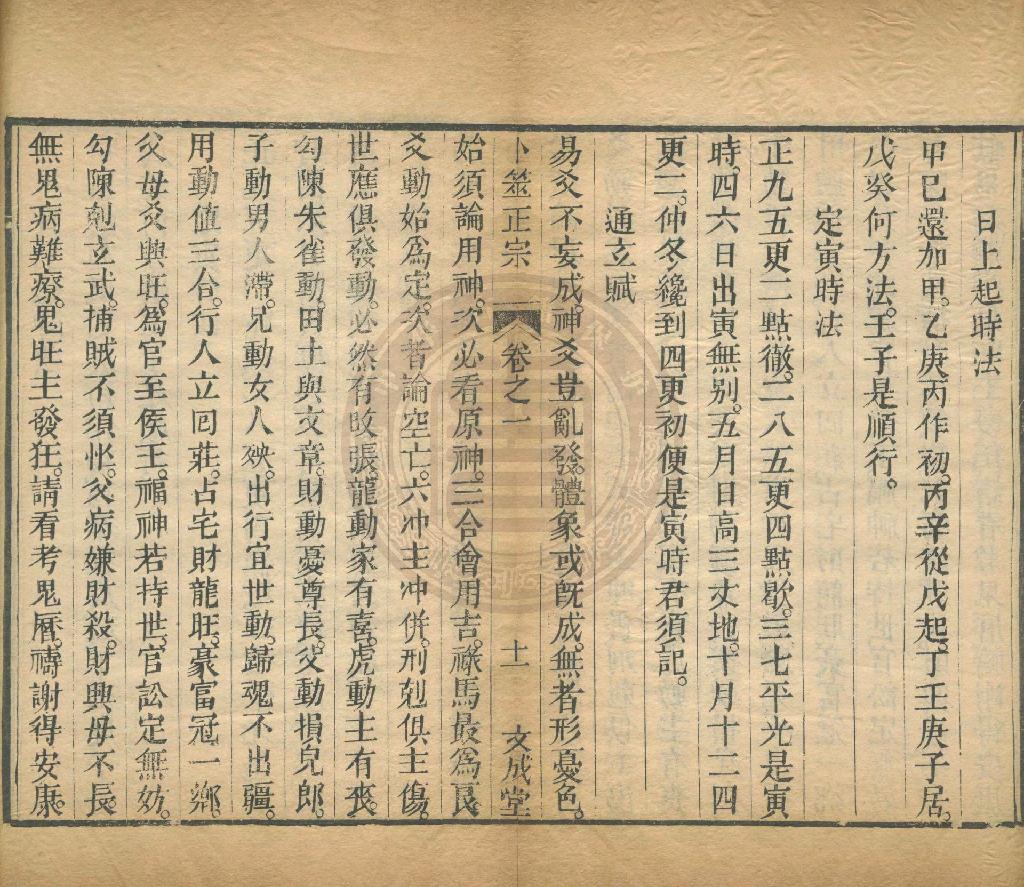 日上起時法
甲己還加甲。乙庚丙作初。丙辛從戊起。丁壬庚子居。
戊癸何方法。壬子是順行。
定寅時法
正九五更二點徹。二八五更四點歇。三七平光是寅
時。四六日出寅無別。五月日高三丈地。十月十二四
更二。仲冬纔到四更初便是寅時君須記。
通玄賦
易爻不妄成。神爻豈亂發。體象或旣成。無者形憂色。
卜筮正宗 卷之一 十一 文成堂
始須論用神。次必看原神。三合會用吉。祿馬最爲良
爻動始爲定。次者論空亡。六冲主冲併。刑剋俱主傷。
世應俱發動。必然有攺張。龍動家有喜。虎動主有喪。
勾陳朱雀動。田土與文章。財動憂尊長。父動損兒郎。
子動男人滯。兄動女人殃。出行宜世動。歸魂不出疆。
用動値三合。行人立囘莊。占宅財龍旺。豪富冠一鄉。
父母爻興旺。爲官至侯王。福神若持世。官訟定無妨。
勾陳剋玄武。捕賊不須忙。父病嫌財殺。財興母不長。
無鬼病難療。鬼旺主發狂。請看考鬼曆。禱謝得安康。